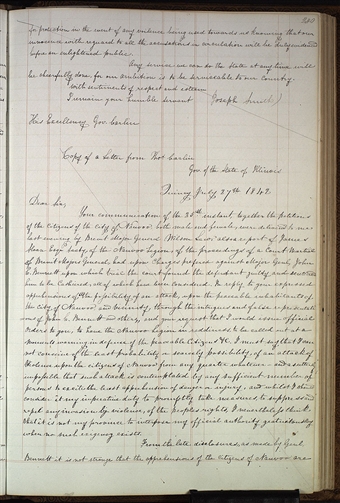 for protection in the event of any violence being used towards us knowing that our
innocence with regard to all the accusations in circulation will be fully evidenced
before an enlightened public.
Any service we can do the state at any time will
be cheerfully done for our ambition is to be serviceable to our country.
With sentiments of respect and esteem
I remain your humble servant Joseph Smith
His Excellency Gov. Carlin
Copy of a Letter from Thos Carlin
Gov. of the State of Illinois
Quincy July 27th 1842.
Dear Sir,
Your communication of the 25th instant together the petitions
of the citizens of the city of Nauvoo both male and female were delivered to me
last evening by Brevet Major General Wilson Law; also a report of James
Sloan Esqr. Secty. of the Nauvoo Legion of the proceedings of a Court Martial
of Brevet Major Generals had upon charges prefered against Major Genl. John
C Bennett upon which trial the court found the defendant guilty and sentenced
him to be Cashiered; all of which have been considered. In reply to your expressed
apprehensions of the possibility of an attack upon the peaceable inhabitants of
the City of Nauvoo and vicinity, through the intrigues and false representations
of John C. Bennett and others, and your request that I would issue official
orders to you, to have the Nauvoo Legion in readiness to be called out at a
moments warning in defence of the peaceable citizens &c. I must say that I am
not conscious of the least probability or scarcely possibility of an attack of
violence upon the citizens of Nauvoo from any quarter whatever and as utterly
impossible that such attack is contemplated by any sufficient number of
persons to excite the least apprehension of danger or injury, and whilst I should
consider it my imperative duty to promptly take measures to suppress and
repel any invasion by violence of the peoples rights, I nevertheless think
that it is not my province to interpose my official authority gratuitously
when no such exigency exists.
From the late disclosures, as made by Genl.
Bennett it is not strange that the apprehensions of the citizens of Nauvoo are